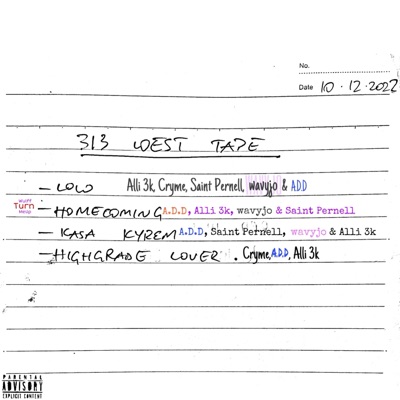 No.
Date 10.12.2022
313 WEST TAPE
- LOW Alli 3k, Cryme, Saint Pernell, wavyjo & ADD
Turn
- HOMECOMING A.D.D, Alli 3k, wavyjo & Saint Pernell
- KASA KYREM A.D.D, Saint Pernell, wavyjo & Alli 3k
- HIGHGRADE LOVER. Cryme, A.D.D, Alli 3k
PARENTAL
ADVISORY
EXPLICIT CONTENT